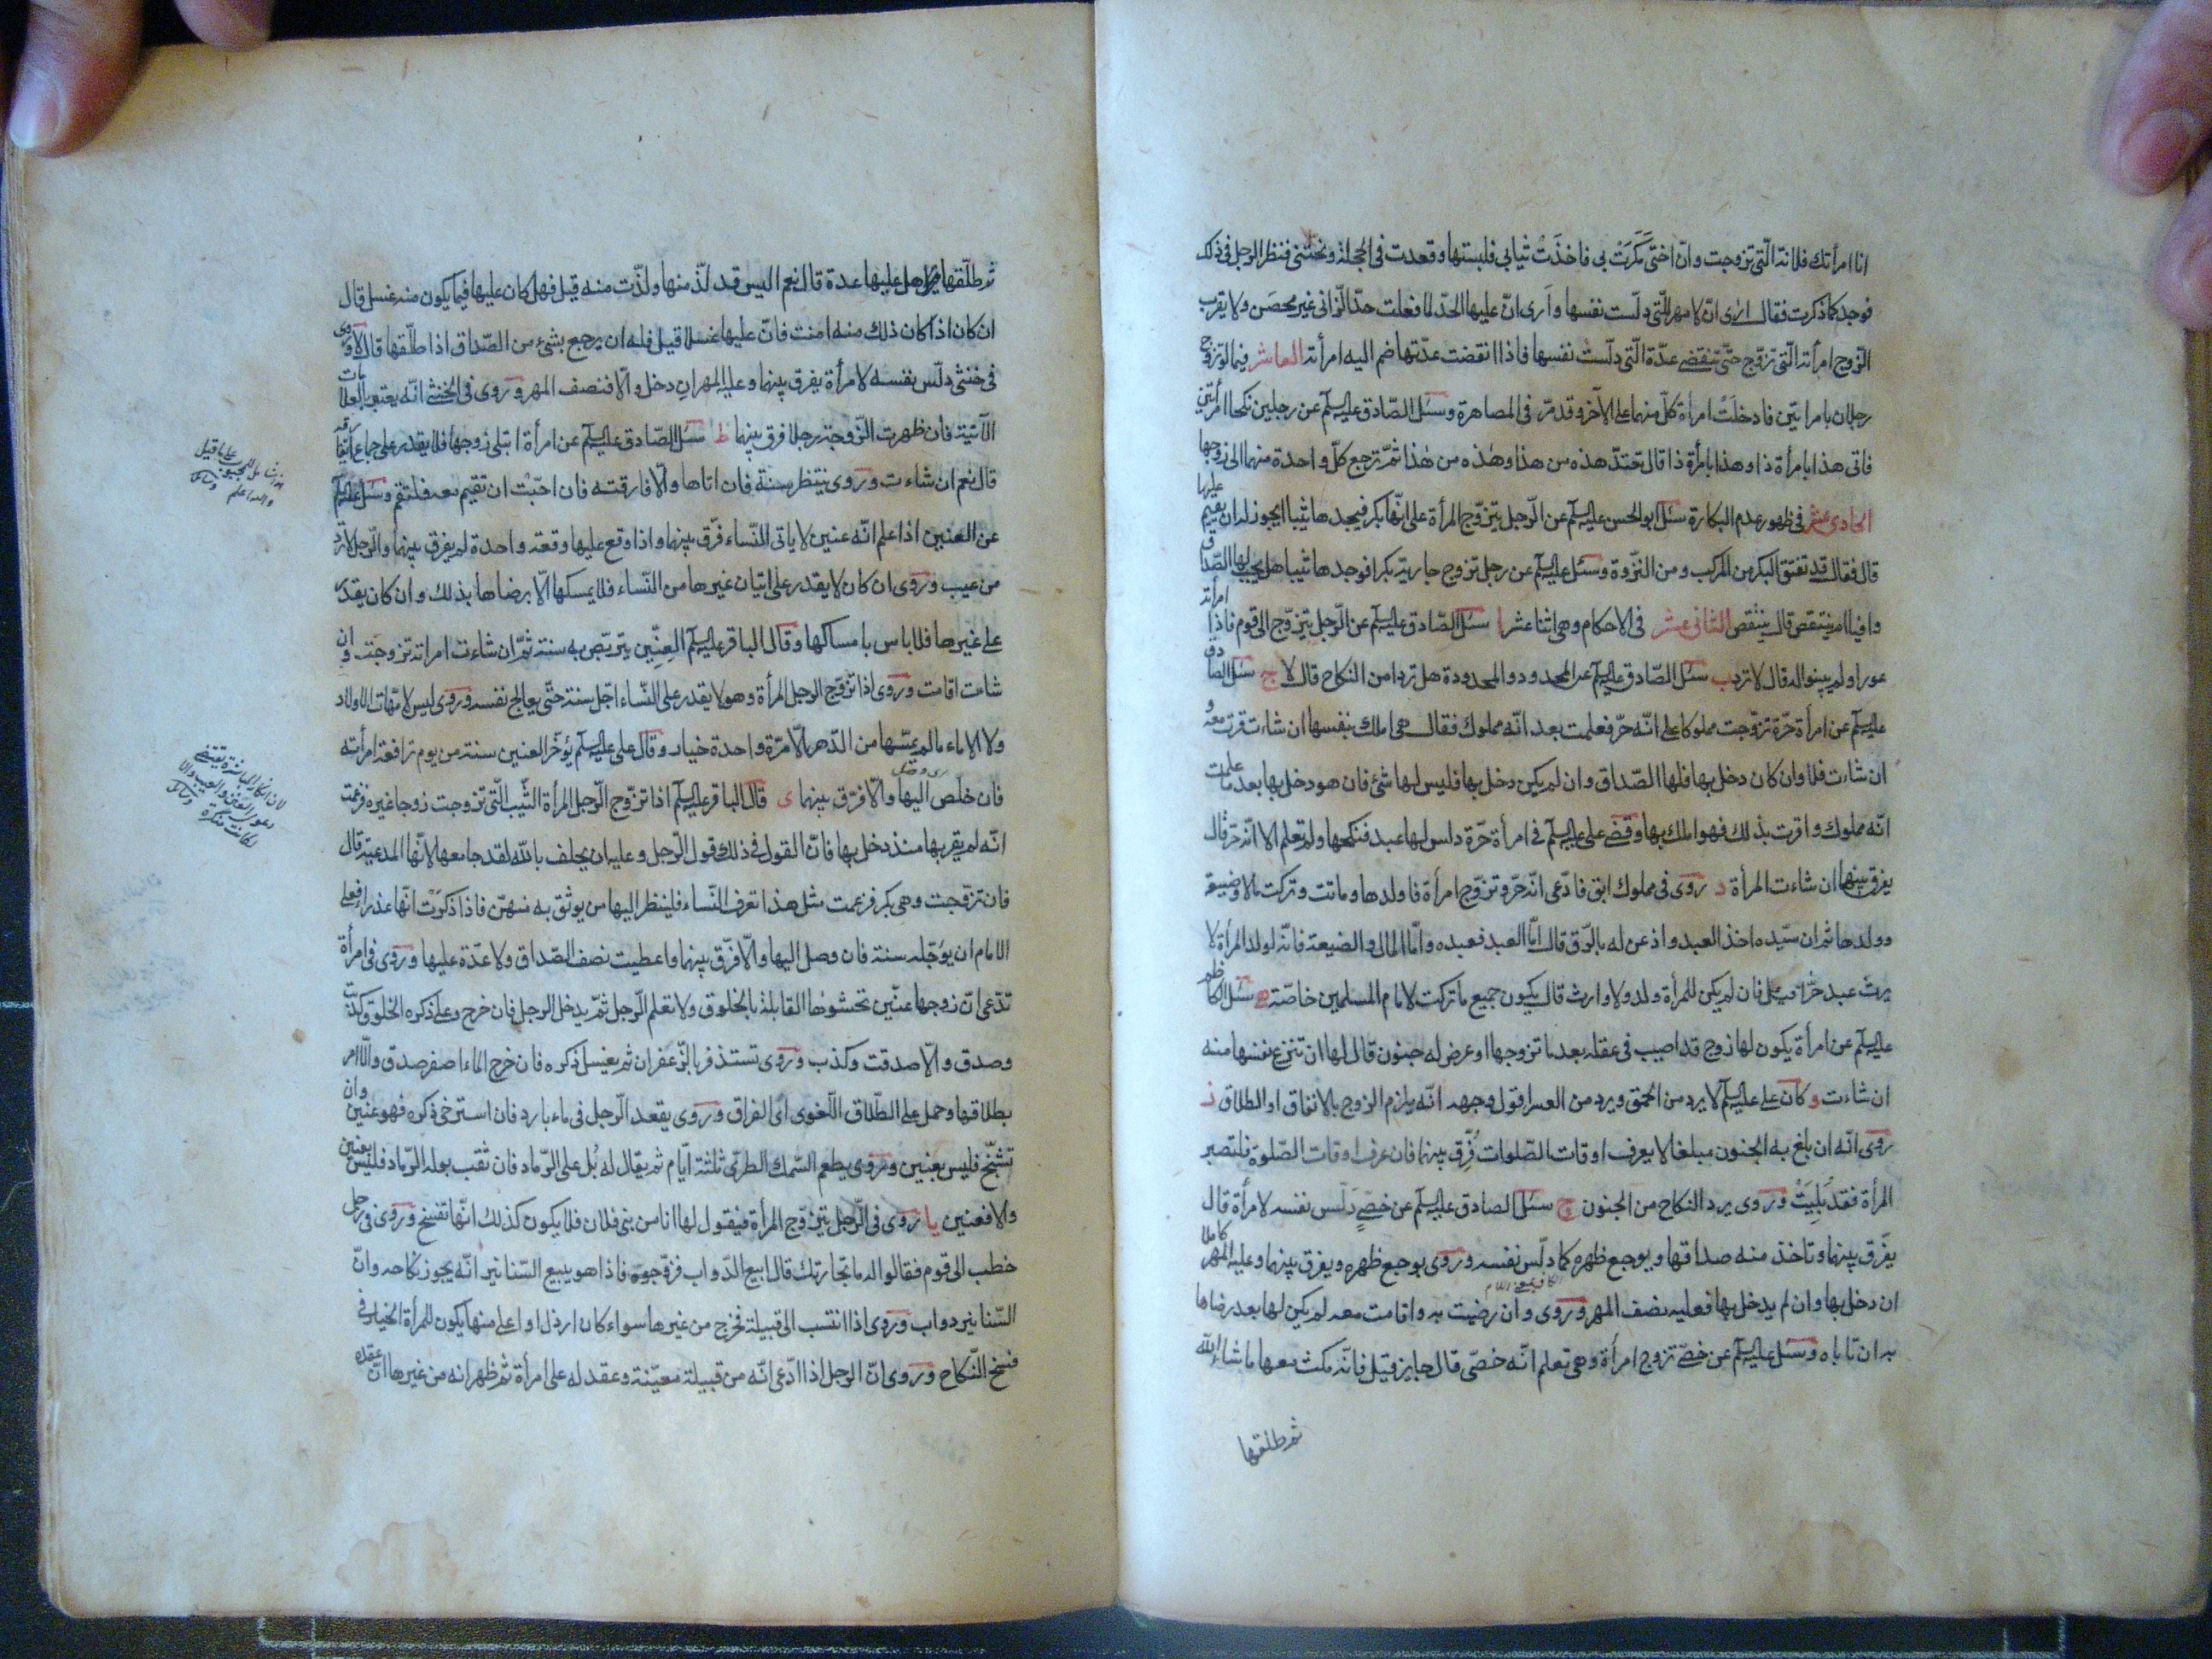 انا امرأتك فلانة الّتي تزوجت وانّ اختي مَكَرَتْ بي فاخذَتْ ثيابي فلبستها وقعدت في الحجلة ونحّتني فنظر الرجل في ذلك
فوجد كما ذكرت فقال ارى ان لا مهر للّتي دلّست نفسها وأرى انّ عليها الحدّ لما فعلت حدّ الزّاني غير محصَن ولا يقرب
الزّوج امرأته الّتي تزوّج حتّى تنقضي عدّة الّتي دلّست نفسها فاذا انقضت عدّتها ضمّ اليه امرأته العاشر فيما لو تزوج
رجلان بامراتين فادخلَتْ امراة كلّ منهما على الآخر وقد مرّ في المصاهرة وسئل الصّادق عليه السلم عن رجلين نكحا امرأتين
فاتى هذا بامرأة ذا وهذا بامرأة ذا قال تعتدّ هذه من هذا وهٰذه من هٰذا ثمّ ترجع كلّ واحدة منهما الى زوجها
الحادي عشر في ظهور عدم البكارة سئل ابو الحسن عليه السلم عن الرّجل يتزوّج المرأة على انّها بكر فيجدها ثيبا ايجوز له ان يقيم عليها
قال فقال قد تفتق البكر من المركب ومن النّزوة وسئل عليه السلم عن رجل تزوج جارية بكرا فوجدها ثيبا هل يجب لها الصّداق
وافيا ام ينتقص قال ينتقص الثاني عشر في الاحكام وهي اثنا عشر ا سئل الصّادق عليه السلم عن الرّجل يتزوّج الى قوم فاذا امرأته
عورا ولم يبينوا له قال لا ترد ب سئل الصّادق عليه السلم عن المحدود والمحدودة هل ترد من النكاح قال لا ج سئل الصادق
عليه السلم عن امرأة حرّة تزوّجت مملوكا على انّه حرّ فعلمت بعد انّه مملوك فقال هي املك بنفسها ان شاءت قرت معه و
ان شاءت فلا وان كان دخل بها فلها الصّداق وان لم يكن دخل بها فليس لها شئ فان هو دخل بها بعد ما علمت
انّه مملوك واقرت بذلك فهو املك بها وقضى علي عليه السلم في امرأة حّرة دلس لها عبد فنكحها ولم تعلم الا انّه حرّ قال
يفرق بينهما ان شاءت المرأة د روى في مملوك ابق فادّعى انّه حرّ وتزوّج امرأة فاولدها وماتت وتركت مالا وضيعة
وولدها ثم ان سيّده اخذ العبد واذعن له بالرّق قال امّا العبد فعبده وامّا المال والضيعة فانّه لولد المرأة لا
يرث عبد حرّا قيل فان لم يكن للمرأة ولد ولا وارث قال يكون جميع ما تركت لامام المسلمين خاصّة ه سئل الكاظم
عليه السلم عن امرأة يكون لها زوج قد اصيب في عقله بعد ما تزوجها او عرض له جنون قال لها ان تنزع نفسها منه
ان شاءت و كان علي عليه السلم لا يرد من الحمق ويرد من العسر اقول وجهه انّه يلزم الزوج بالانفاق او الطلاق ز
روى انّه ان بلغ به الجنون مبلغا لا يعرف اوقات الصّلوات فُرِّق بينهما فان عرف اوقات الصّلوة فلتصبر
المرأة فقد بُلِيَتْ وروى يرد النكاح من الجنون ح سئل الصادق عليه السلم عن خصيّ دلّس نفسه لامرأة قال
يفَرّق بينهما وتاخذ منه صداقها ويوجع ظهره كما دلّس نفسه وروى يوجع ظهره ويفرق بينهما وعليه المهر كاملا
ان دخل بها وان لم يدخل بها فعليه نصف المهر وروى وان رضيت به واقامت معه لم يكن لها بعد رضاها
به ان تاباه وسئل عليه السلم عن خصّي تزوج امرأة وهي تعلم انّه خصّي قال جايز قيل فانّه مكث معها ما شاء الله
ثم طلقها
ثم طلّقها هل عليها عدة قال نعم اليس قد لذّ منها ولذّت منه قيل فهل كان عليها فيما يكون منه غسل قال
ان كان اذا كان ذلك منه امنت فانّ عليها غسلا قيل فله ان يرجع بشئ من الصّداق اذا طلّقها قال لا وروى
في خنثى دلّس نفسه لامرأة يفرق بينهما وعليه المهر ان دخل والّا فنصف المهر وروى في الخنثى انّه يعتبر بالعلامات
الآتية فان ظهرت الزّوجة رجلا فرق بينهما ط سئل الصّادق عليه السلم عن امرأة ابتلى زوجها فلا يقدر على جماع اتفارقه
قال نعم ان شاءت وروى ينتظر سنة فان اتاها والّا فارقته فان احبّت ان تقيم معه فلتقم وسئل عليه السلم
عن العنين اذا علم انّه عنين لا ياتي النّساء فرّق بينهما واذا وقع عليها وقعة واحدة لم يفرق بينهما والرّجل لا يردّ
من عيب وروى ان كان لا يقدر على اتيان غيرها من النّساء فلا يمسكها الّا برضاها بذلك وان كان يقدر
على غيرها فلا باس بامساكها وقال الباقر عليه السلم العِنِّين يتربّص به سنة ثمّ ان شاءت امراته تزوجت وان
شاءت اقامت وروى اذا تزوّج الرجل المرأة وهو لا يقدر على النّساء اجّل سنة حتّى يعالج نفسه وروى ليس لامّهات الاولاد
ولا الاماء ما لم يمسّها من الدّهر الّا مرّة واحدة خيار وقال علي عليه السلم يؤخّر العنين سنة من يوم ترافعه امرأته
فان خلص اليها والّا فرّق بينهما ي قال الباقر عليه السلم اذا تزوّج الرّجل المرأة الثيّب الّتي تزوجت زوجا غيره فزعمت
انّه لم يقربها منذ دخل بها فانّ القول في ذلك قول الرّجل وعليه ان يحلف بالله لقد جامعها لانّها المدعية قال
فان تزوّجت وهي بكر فزعمت مثل هذا تعرف النّساء فلينظر اليها من يوثق به منهنّ فاذا ذكرَتْ انّها عذراء فعلى
الامام ان يؤجّله سنة فان وصل اليها والّا فرّق بينهما واعطيت نصف الصّداق ولا عدّة عليها وروى في امرأة
تدّعي انّ زوجها عنّين تحشوها القابلة بالخلوق ولا تعلم الرّجل ثمّ يدخل الرجل فان خرج وعلى ذكره الخلوق كذبت
وصدق والّا صدقت وكذب وروى تستذفر بالزّعفران ثم يغسل ذكره فان خرج الماء اصفر صدق والّا امر
بطلاقها وحمل على الطّلاق اللّغوي اى الفراق وروى يقعد الرّجل في ماء بارد فان استرخى ذكره فهو عنين وان
تشنّج فليس بعنين وروى يطعم السّمك الطرىّ ثلثة ايّام ثم يقال له بُل على الرّماد فان ثقب بوله الرّماد فليس بعنين
والا فعنين يا روى في الرّجل يتزوّج المرأة فيقول لها انا من بني فلان فلا يكون كذلك انّها تفسخ وروى في رجل
خطب الى قوم فقالوا له ما تجارتك قال ابيع الدّواب فزوّجوه فاذا هو يبيع السّنانير انّه يجوز نكاحه وانّ
السّنانير دواب وروى اذا انتسب الى قبيلة فخرج من غيرها سواء كان ارذل او اعلى منها يكون للمرأة الخيار في
فسخ النّكاح وروى انّ الرجل اذا ادّعى انّه من قبيلة معيّنة وعقد له على امرأة ثم ظهر انه من غيرها انّ عقده